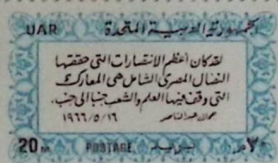 الجمهورية العربية المتحدة
UAR
لقد كان أعظم الانتصارات التي حققتها
النضال المصري الشامل هي المعارك
التي وقف فيها العلم والشعب جنبا الى جنب.
جمال عبد الناصر
١٩٦٦/٥/١٦
20 M POSTAGE ٢٠ م